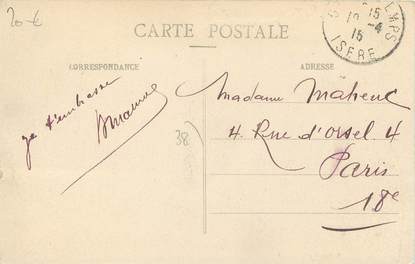 20 €
CARTE POSTALE
CORRESPONDANCE
ADRESSE
15
-4
15
ISERE
je t'embrasse
38
Madame Maheuc
4 Rue d'Orsel 4
Paris
18e